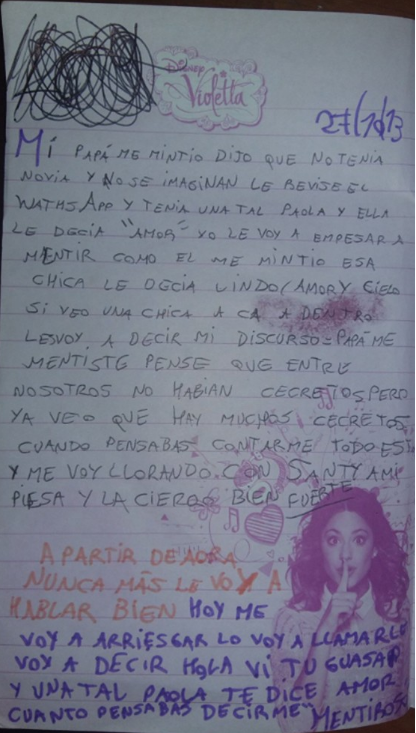 Disney
Violetta
27/10/13
Mi PAPÁ ME MINTIO DIJO QUE NO TENIA
NOVIA Y NO SE IMAGINAN LE REVISE EL
WATHSAPP Y TENIA UNA TAL PAOLA Y ELLA
LE DECIA "AMOR" YO LE VOY A EMPESAR A
MENTIR COMO EL ME MINTIO ESA
CHICA LE DECIA LINDO(AMOR Y CIELO
SI VEO UNA CHICA A CA A DENTRO
LESVOY A DECIR MI DISCURSO=PAPÁ ME
MENTISTE PENSE QUE ENTRE
NOSOTROS NO HABIAN CECRETOS PERO
YA VEO QUE HAY MUCHOS CECRETOS
CUANDO PENSABAS CONTARME TODO ESTO
Y ME VOY LLORANDO CON SANTY A MI
PIESA Y LA CIERRO BIEN FUERTE
A PARTIR DE AORA
NUNCA MÁS LE VOY A
HABLAR BIEN HOY ME
VOY A ARRIESGAR LO VOY A LLAMARLE
VOY A DECIR HOLA VI TU GUASAP
Y UNA TAL PAOLA TE DICE AMOR
CUANTO PENSABAS DECIRME" MENTIROSO